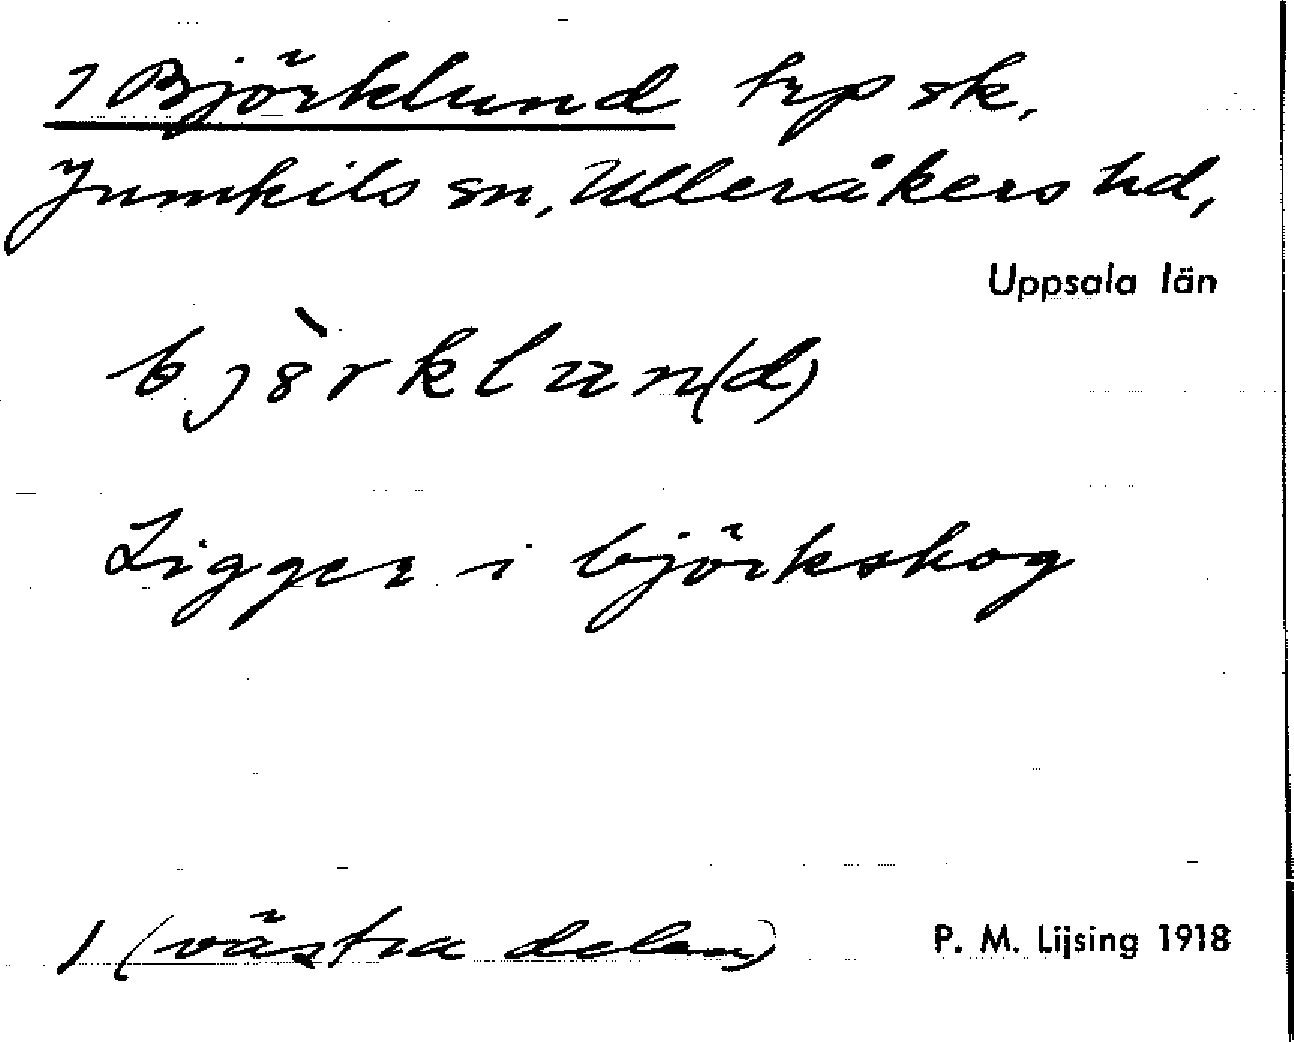 1 Björklund trp sk,
Jumkils sn, Ulleråkers hd,
Uppsala län
bjòrklun(d)
Ligger i björkskog
1 (västra delen)
P. M. Lijsing 1918